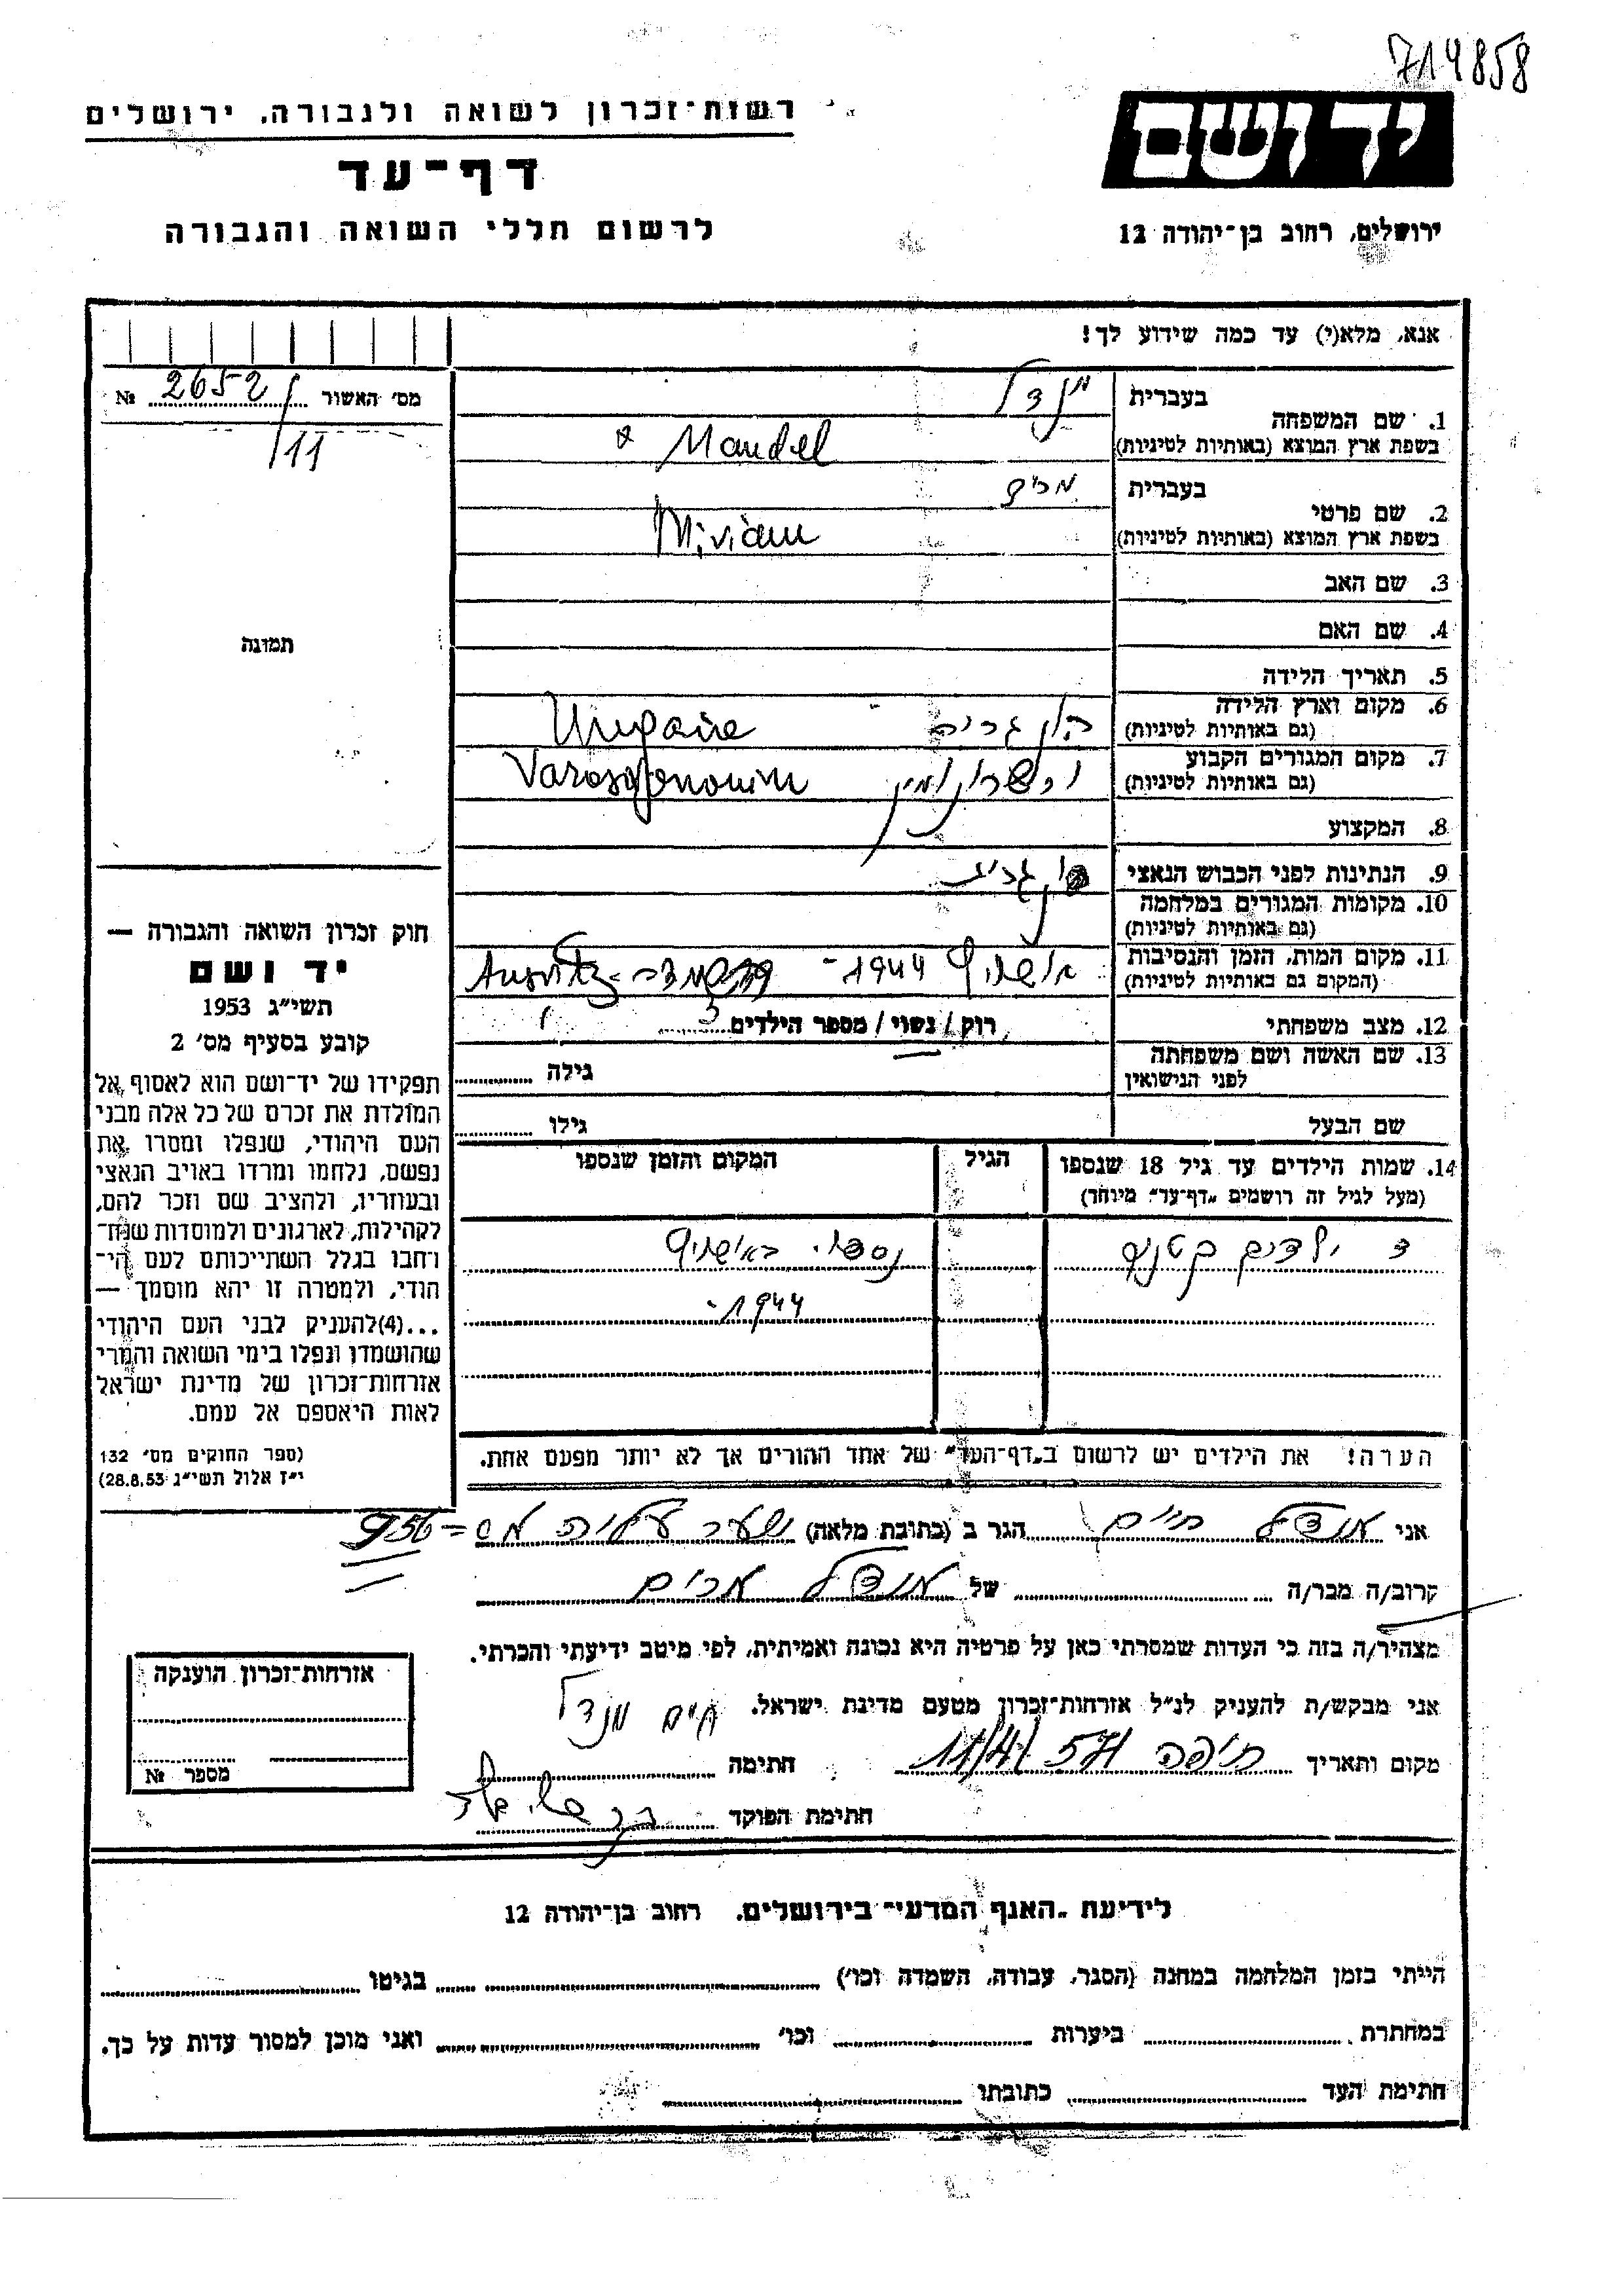 714858
ידושם
ירושלים, רחוב בן־יהודה 12
רשות־זכרון לשואה ולגבורה, ירושלים
דף־עד
לרשום חללי השואה והגבורה
אנא, מלא(י) עד כמה שידוע לך!
מס' האשור 2652/11 №
1. שם המשפחה בעברית מנדל
בשפת ארץ המוצא (באותיות לטיניות) Mandel
2. שם פרטי בעברית מרים
בשפת ארץ המוצא (באותיות לטיניות) Miriam
3. שם האב
4. שם האם
5. תאריך הלידה
6. מקום וארץ הלידה הונגריה Ungaire
(גם באותיות לטיניות)
7. מקום המגורים הקבוע
(גם באותיות לטיניות)
8. המקצוע
9. הנתינות לפני הכבוש הנאצי
10. מקומות המגורים במלחמה
(גם באותיות לטיניות)
11. מקום המות, הזמן והנסיבות 1944 -
(המקום גם באותיות לטיניות)
12. מצב משפחתי רוק / נשוי / מספר הילדים 3
13. שם האשה ושם משפחתה גילה
לפני הנישואין
שם הבעל גילו
14. שמות הילדים עד גיל 18 שנספו הגיל המקום והזמן שנספו
(מעל לגיל זה רושמים „דף־עד" מיוחד)
3 ילדים קטנים נספו באושויץ
1944 -
הערה! את הילדים יש לרשום ב„דף־העד" של אחד ההורים אך לא יותר מפעם אחת.
תמונה
חוק זכרון השואה והגבורה —
יד ושם
תשי"ג 1953
קובע בסעיף מס' 2
תפקידו של יד־ושם הוא לאסוף אל
המולדת את זכרם של כל אלה מבני
העם היהודי, שנפלו ומסרו את
נפשם, נלחמו ומרדו באויב הנאצי
ובעוזריו, ולהציב שם וזכר להם,
לקהילות, לארגונים ולמוסדות שנח־
רחבו בגלל השתייכותם לעם הי־
הודי, ולמטרה זו יהא מוסמך —
...(4)להעניק לבני העם היהודי
שהושמדו ונפלו בימי השואה והמרי
אזרחות־זכרון של מדינת ישראל
לאות היאספם אל עמם.
(ספר החוקים מס' 132
י"ז אלול תשי"ג 28.8.53)
אני מנדל חיים הגר ב (כתובת מלאה) שער עליה מס = 956
קרוב/ה מכר/ה של מנדל מרים
מצהיר/ה בזה כי העדות שמסרתי כאן על פרטיה היא נכונה ואמיתית, לפי מיטב ידיעתי והכרתי.
אני מבקש/ת להעניק לנ"ל אזרחות־זכרון מטעם מדינת ישראל.
מקום ותאריך חיפה 11/4/57 חתימה חיים מנדל
חתימת הפוקד
אזרחות־זכרון הוענקה
מספר №
לידיעת „האגף המדעי" בירושלים, רחוב בן־יהודה 12
הייתי בזמן המלחמה במחנה (הסגר, עבודה, השמדה וכו') בגיטו
במחתרת ביערות וכו' ואני מוכן למסור עדות על כך.
חתימת העד כתובתו